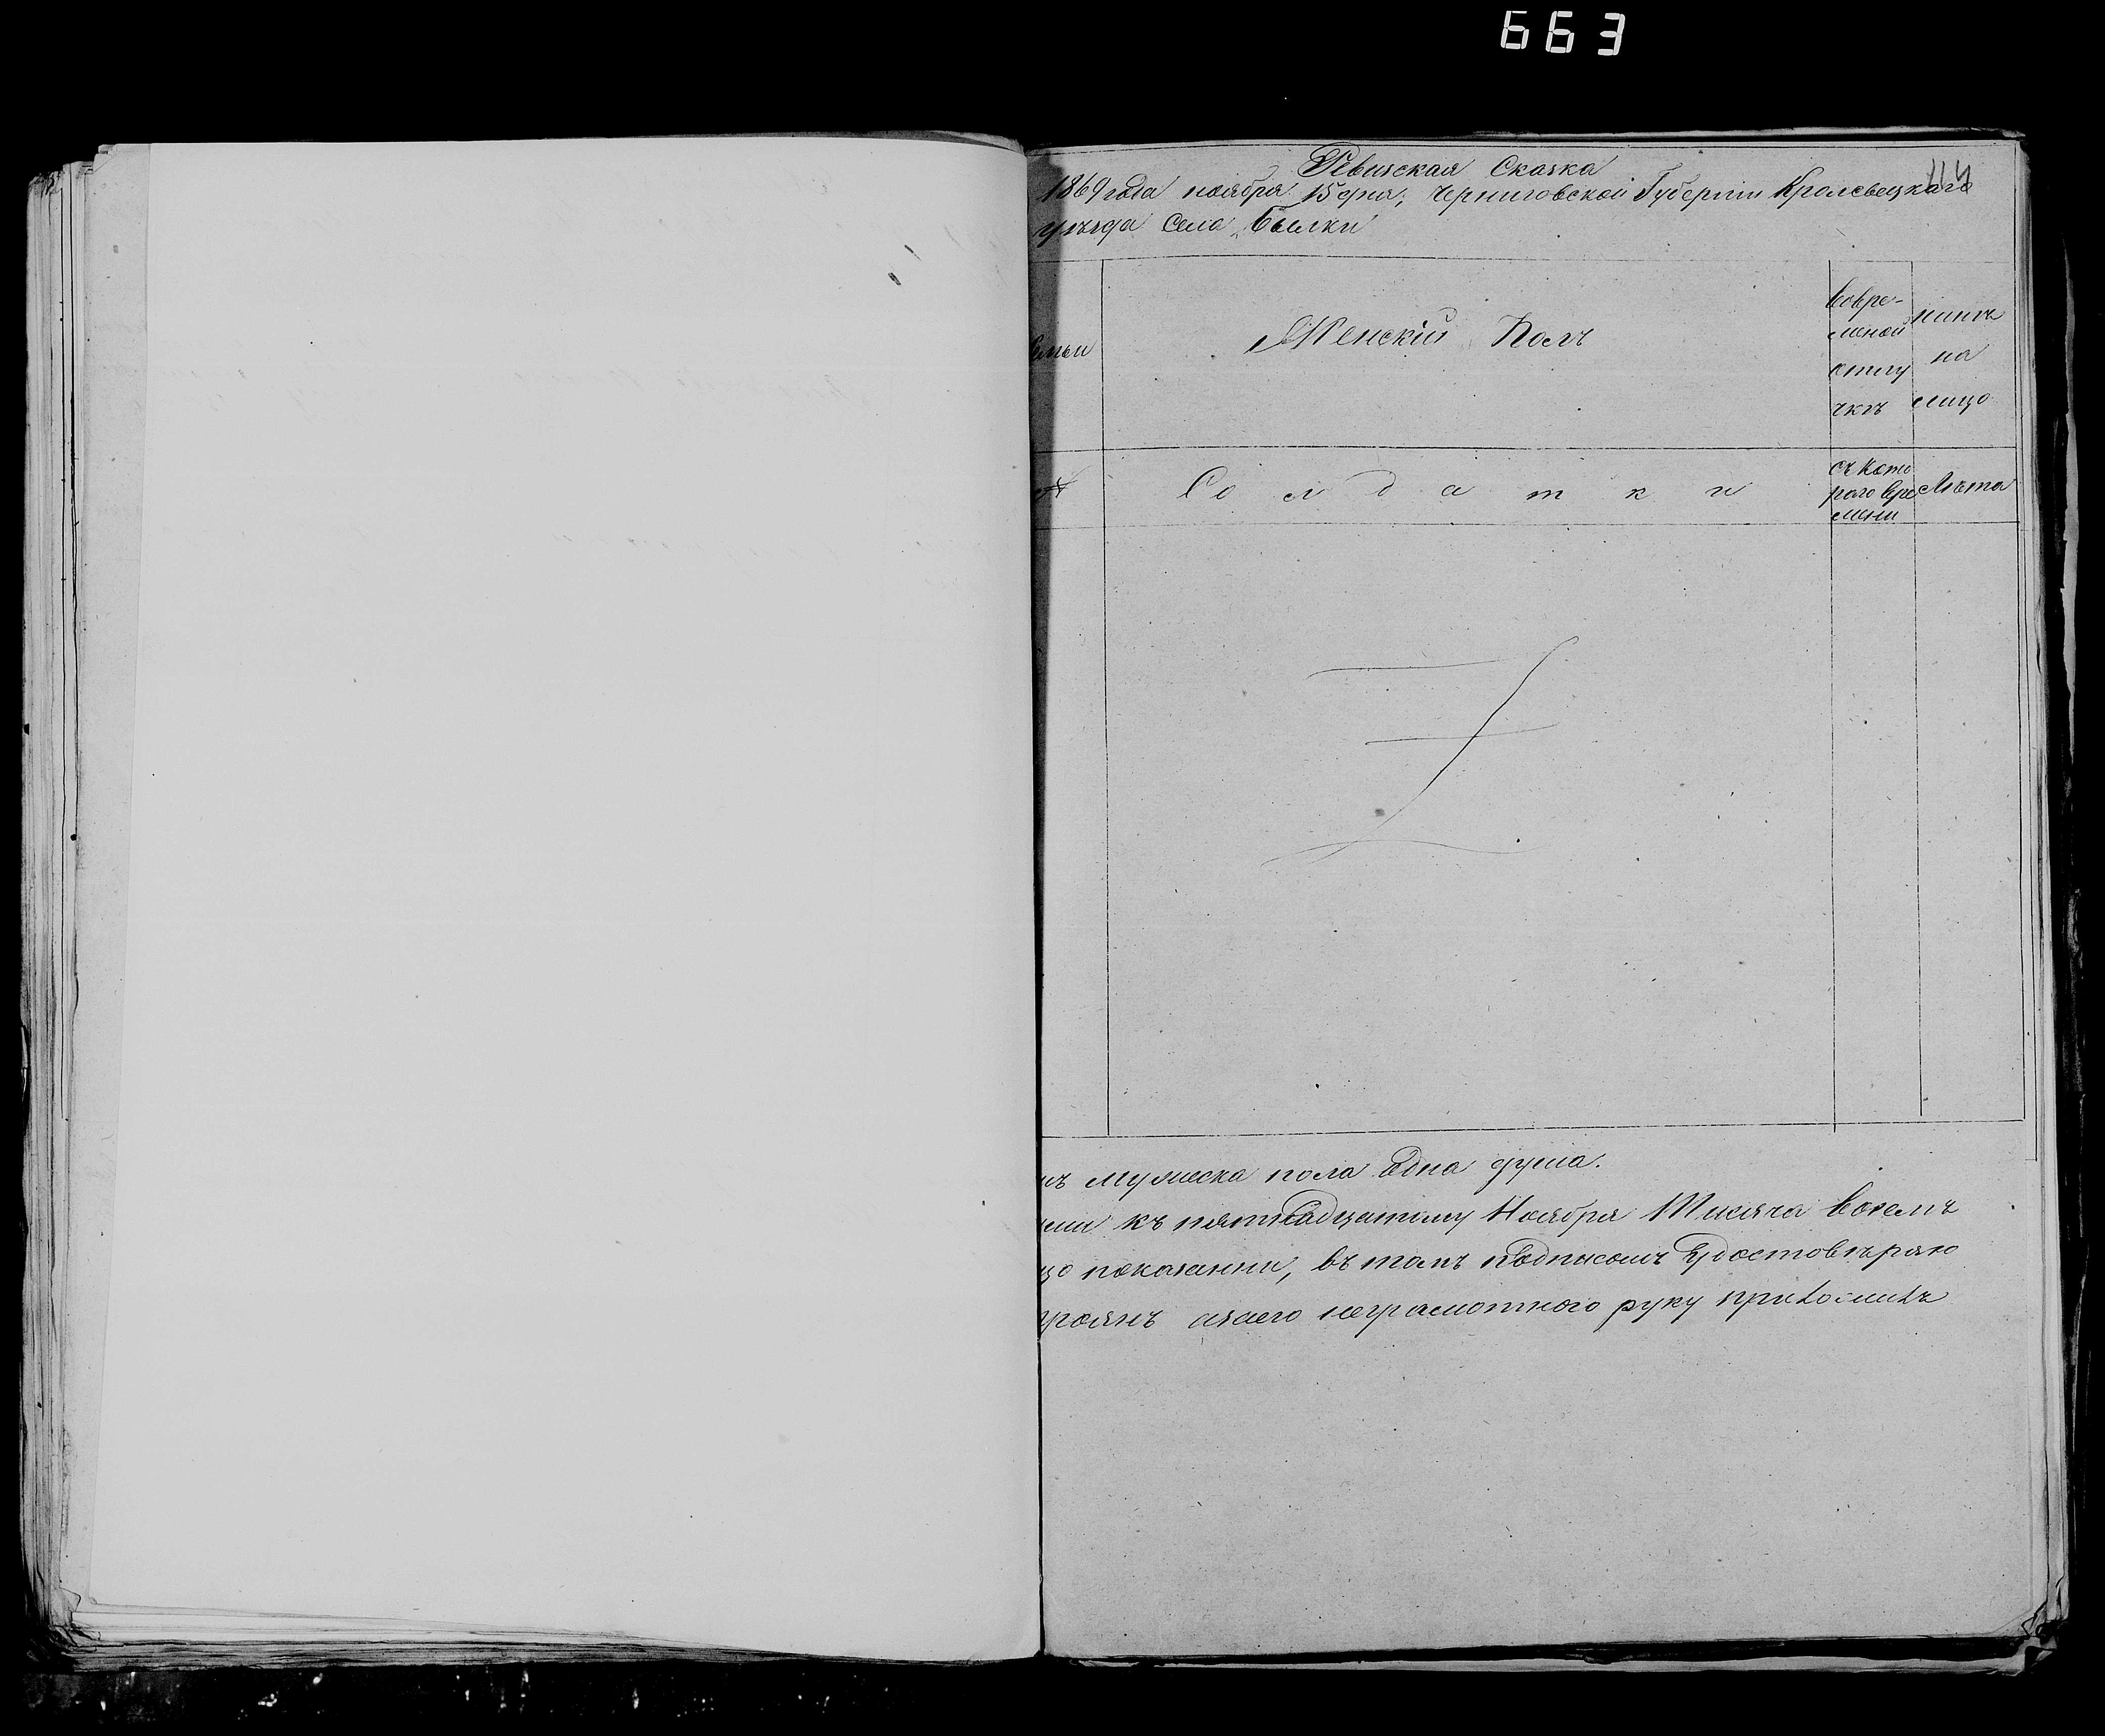 663
114
Ревизская Сказка
1869 года ноября 15 дня, Черниговской Губернии Кролевецкаго
уезда Село Былки
семьи
Женский Полъ
вовре-
меной
отлу
чкѣ
нинѣ
на
лицо
№
Солдатки
съ Кото
раго вре
мени
Лѣта
мужеска пола Една душа.
къ пятнадцатому Ноября Тисяча восемъ
показанни, въ томъ подписомъ Удостовѣряю
неграмотного руку приложилъ